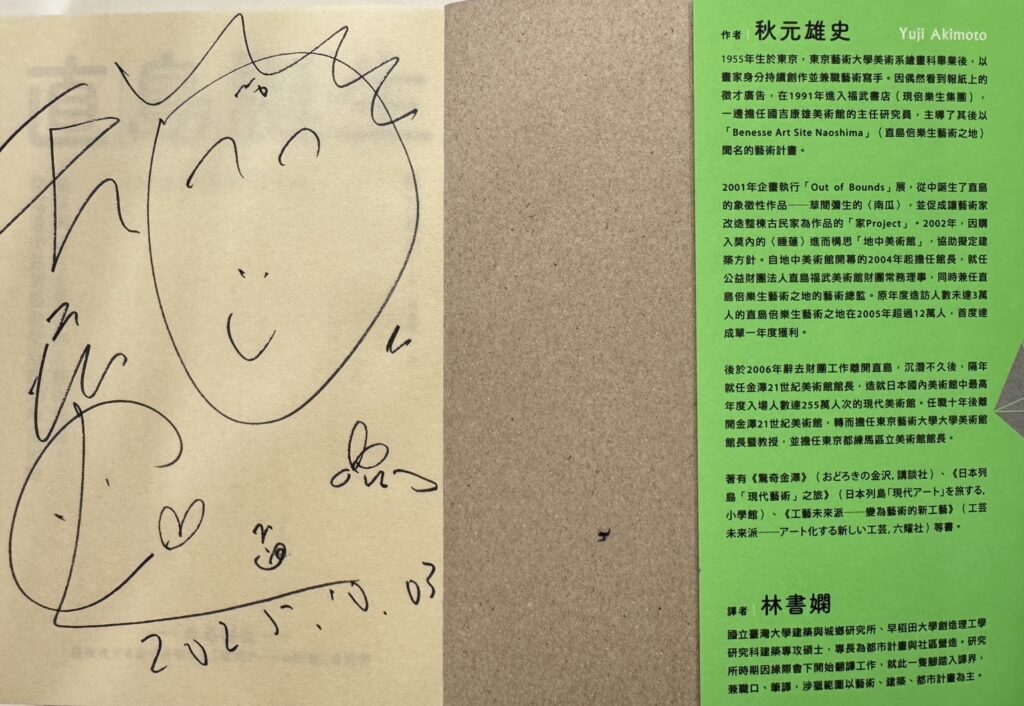 2025.10.03
作者 秋元雄史 Yuji Akimoto
1955年生於東京,東京藝術大學美術系繪畫科畢業後,以
畫家身分持續創作並兼職藝術寫手。因偶然看到報紙上的
徵才廣告,在1991年進入福武書店(現倍樂生集團),
一邊擔任國吉康雄美術館的主任研究員,主導了其後以
「Benesse Art Site Naoshima」(直島倍樂生藝術之地)
聞名的藝術計畫。
2001年企畫執行「Out of Bounds」展,從中誕生了直島
的象徵性作品──草間彌生的〈南瓜〉,並促成讓藝術家
改造整棟古民家為作品的「家Project」。2002年,因購
入莫內的〈睡蓮〉進而構思「地中美術館」,協助擬定建
築方針。自地中美術館開幕的2004年起擔任館長,就任
公益財團法人直島福武美術館財團常務理事,同時兼任直
島倍樂生藝術之地的藝術總監。原年度造訪人數未達3萬
人的直島倍樂生藝術之地在2005年超過12萬人,首度達
成單一年度獲利。
後於2006年辭去財團工作離開直島,沉潛不久後,隔年
就任金澤21世紀美術館館長,造就日本國內美術館中最高
年度入場人數達255萬人次的現代美術館。任職十年後離
開金澤21世紀美術館,轉而擔任東京藝術大學大學美術館
館長暨教授,並擔任東京都練馬區立美術館館長。
著有《驚奇金澤》(おどろきの金沢,講談社)、《日本列
島「現代藝術」之旅》(日本列島「現代アート」を旅する,
小學館)、《工藝未來派──變為藝術的新工藝》(工芸
未来派──アート化する新しい工芸,六耀社)等書。
譯者 林書嫻
國立臺灣大學建築與城鄉研究所、早稻田大學創造理工學
研究科建築專攻碩士,專長為都市計畫與社區營造。研究
所時期因緣際會下開始翻譯工作,就此一隻腳踏入譯界,
兼職口、筆譯,涉獵範圍以藝術、建築、都市計畫為主。